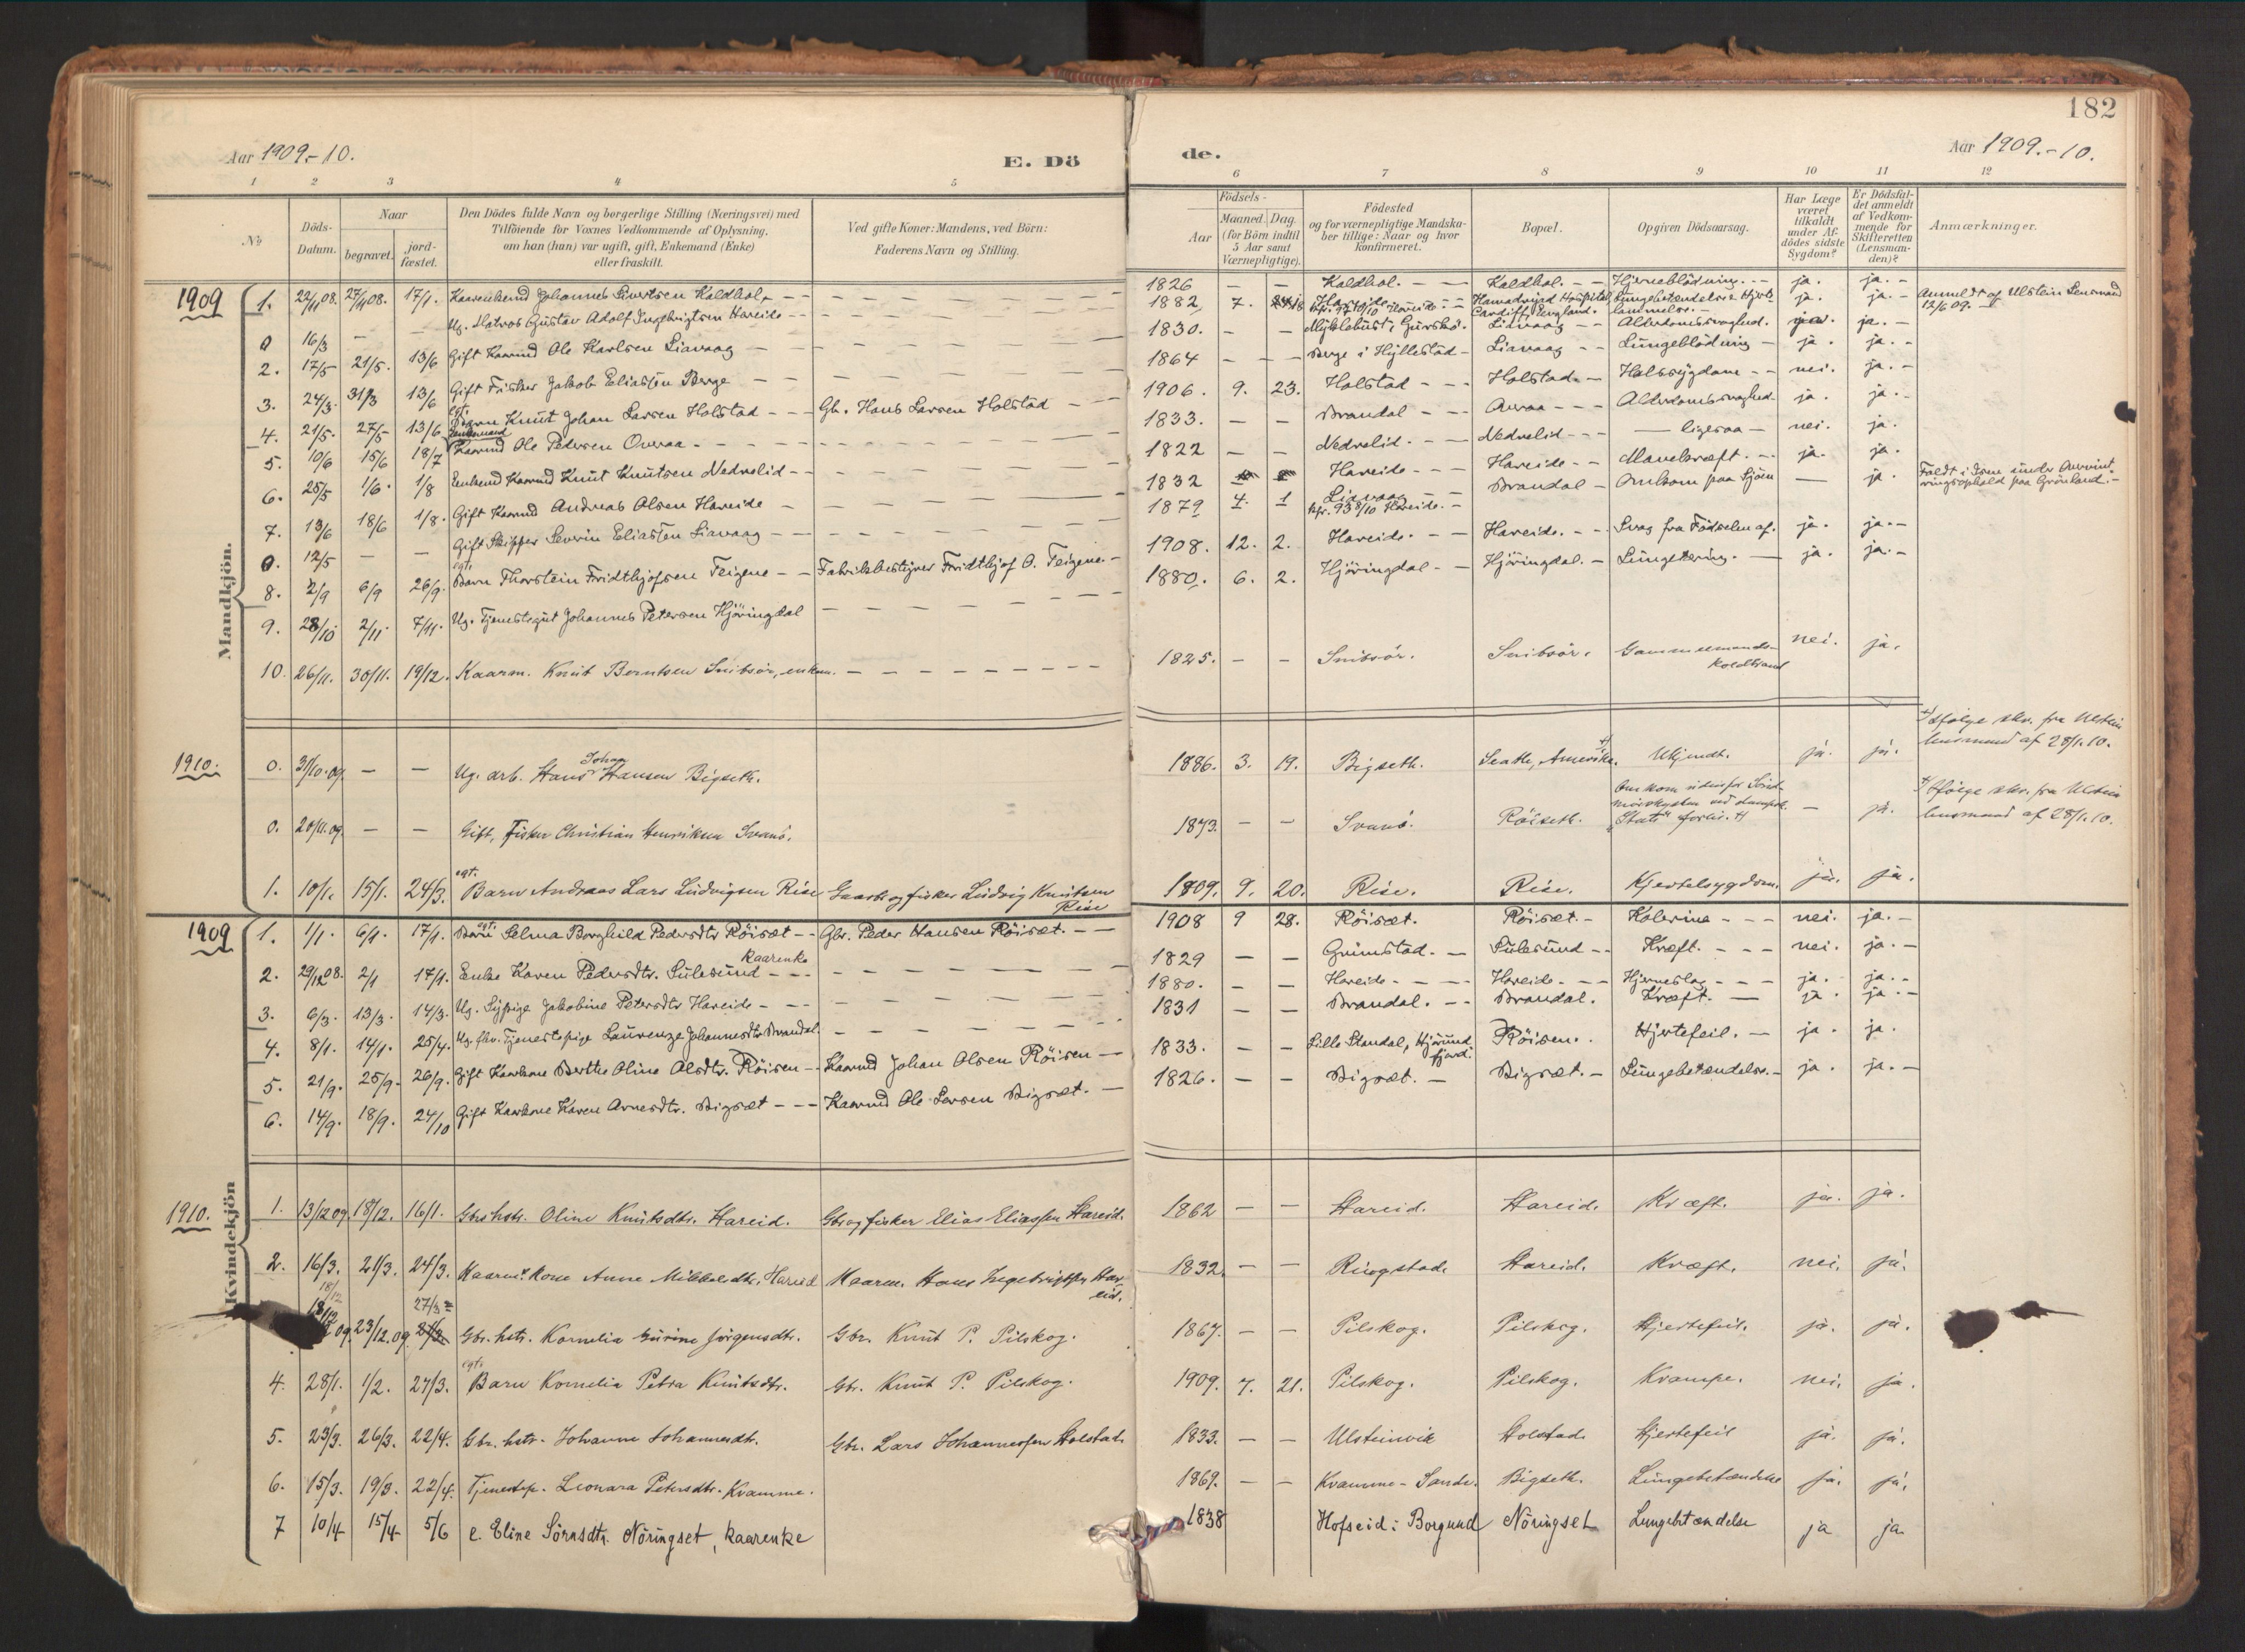 182
Aar 1909.-10.
E. Dö
de.
Aar 1909.-10.
1 2 3 4 5 6 7 8 9 10 11 12
No
Döds-
Datum.
Naar
begravet.
jord-
fæstet.
Den Dödes fulde Navn og borgerlige Stilling (Næringsvei) med
Tilföiende for Voxnes Vedkommende af Oplysning,
om han (hun) var ugift, gift, Enkemand (Enke)
eller fraskilt.
Ved gifte Koner: Mandens, ved Börn:
Faderens Navn og Stilling.
Födsels-
Aar
Maaned. Dag.
(for Börn indtil
5 Aar samt
Værnepligtige).
Födested
og for værnepligtige Mandska-
ber tillige: Naar og hvor
konfirmeret.
Bopæl.
Opgiven Dödsaarsag.
Har Læge
været
tilkaldt
under Af-
dödes sidste
Sygdom?
Er Dödsfal-
det anmeldt
af Vedkom-
mende for
Skifteretten
(Lensman-
den)?
Anmærkninger.
Mandkjön.
1909
1. 22/11 08. 27/11 08. 17/1. Johannes Sivertsen Kaldhol 1826 Kaldhol. Kaldhol. Hjerneblödning. ja. ja.
0 16/3 Ug. Matros Gustav Adolf Ingebrigtsen Hareide 1882 7. Hareide Cardiff, England. Lungebetændelse & Hjerte- lammelse. ja. ja. Anmeldt af Ulstein Lensmand 12/6 09.
2. 17/5 21/5. 13/6 Gift Kaarmd Ole Karlsen Liavaag 1830. Myklebust i Gurskö. Liavaag Alderdomssvaghed. ja. ja.
3. 24/3. 31/3 13/6 Gift Fisker Jakob Eliassen Berge 1864 Berge i Hyllestad Liavaag Lungeblödning ja. ja.
4. 21/5. 27/5 13/6 egt. Barn Knut Johan Larsen Holstad Gb. Hans Larsen Holstad 1906. 9. 23. Holstad Holstad. Halssygdom nei. ja.
5. 10/6 15/6 18/7 Enkemand Kaarmd Ole Petersen Overaa 1833. Brandal Overaa Alderdomssvaghed. ja. ja.
6. 25/5 1/6. 1/8 Kaarmd Knut Knutsen Nedrelid 1822 Nedrelid. Nedrelid ligesaa nei. ja.
7. 13/6 18/6 1/8. Gift Kaarmd Andreas Olsen Hareide 1832 Hareide Hareide Mavekræft. ja. ja.
0. 12/5 Gift Skipper Severin Eliassen Liavaag 1879 4. 1 Liavaag kfr. 93 8/10 Hareide. Brandal Omkom paa Sjöen ja. Faldt i Isen under Overvint- ringsophold paa Grönland.
8. 2/9 6/9 26/9. egt. Barn Thorstein Fridthjofsen Teigene Fabrikbestyrer Fridthjof O. Teigene. 1908. 12. 2. Hareide. Hareide. Svag fra Födselen af. ja. ja.
9. 28/10 2/11 7/11. Ug. Tjenestegut Johannes Petersen Hjöringdal 1880. 6. 2. Hjöringdal Hjöringdal. Lungetæring. ja. ja.
10. 26/11. 30/11. 19/12. Kaarm. Knut Berntsen Snibsör, enkem. 1825. Snibsör. Snibsör. Gammelmands- koldbrand nei. ja.
1910.
0. 31/10.09. Ug. arb. Hans Johan Hansen Bigseth. 1886. 3. 19. Bigseth. Seatle, Amerika. Ukjendt. ja. ja. Ifölge skr. fra Ulstein lensmand af 28/1.10.
0. 20/11.09. Gift, Fisker Christian Henriksen Svanö. 1873. Svanö. Röiseth. Omkom udenfor Sönd- mörskysten ved dampsk. "Stats" forlis. ja. Ifölge skr. fra Ulstein lensmand af 28/1.10.
1. 10/1. 15/1. 24/3. egt. Barn Andreas Lars Ludvigsen Rise Gaardb. og fisker Ludvig Knutsen Rise 1809. 9. 20. Rise. Rise. Kjertelsygdom. ja. ja.
Kvindekjön
1909
1. 1/1. 6/1. 17/1. egt. Barn Selma Borghild Pedersdtr Röisæt Gbr. Peder Hansen Röisæt. 1908 9 28. Röisæt. Röisæt. Kolerine nei. ja.
2. 29/12 08. 2/1 17/1. Enke Karen Pedersdtr. Sulesund Kaarenke 1829 Grimstad. Sulesund Kræft. nei. ja.
3. 6/3. 13/3. 14/3. Ug. Sypige Jakobine Petersdtr Hareide 1880. Hareide Hareide Hjerneslag ja. ja.
4. 8/1. 14/1. 25/4. Ug. Tjenestepige Laurenze Johannesdtr Brandal. 1831 Brandal. Brandal. Kræft. ja. ja.
5. 21/9. 25/9. 26/9. Gift Kaarkone Berthe Oline Olsdtr. Röisen Kaarmd Johan Olsen Röisen 1833. Lille Standal, Hjörund- fjord. Röisen. Hjertefeil. ja. ja.
6. 14/9. 18/9. 24/10 Gift Kaarkone Karen Arnesdtr. Bigsæt Kaarmd Ole Larsen Bigsæt. 1826. Bigsæt. Bigsæt. Lungebetændelse. ja. ja.
1910.
1. 13/12 09. 18/12. 16/1. Gbrs hstr. Oline Knutsdtr. Hareid. Gbr og fisker Elias Eliassen Hareid. 1862 Hareid. Hareid. Kræft. ja. ja.
2. 16/3. 21/3. 24/3. Kaarm. Kone Anne Mikkelsdtr. Hareid Kaarm. Hans Ingebrigtsen Har- eid. 1832. Ringstad. Hareid. Kræft. nei. ja.
18/12 09. 23/12.09. 27/3 Gbr. hstr. Kornelia Gurine Jörgensdtr. Gbr. Knut P. Pilskog. 1867. Pilskog. Pilskog. Hjertefeil. ja. ja.
4. 28/1. 1/2. 27/3. egt. Barn Kornelia Petra Knutsdtr. Gbr. Knut P. Pilskog. 1909. 7. 21. Pilskog. Pilskog. Krampe. nei. ja.
5. 23/3. 26/3. 22/4. Gbr. hstr. Johanne Johannesdtr. Gbr. Lars Johannessen Holstad 1833. Ulsteinvik Holstad Hjertefeil ja. ja.
6. 15/3. 19/3. 22/4. Tjenestp. Leonara Petersdtr. Kvamme. 1869. Kvamme - Sande. Bigseth. Lungebetændelse ja. ja.
7 10/4 15/4 5/6 e. Eline Sörensdtr. Nöringset, kaarenke 1838 Hofseid i Borgund Nöringset Lungebetændelse ja ja